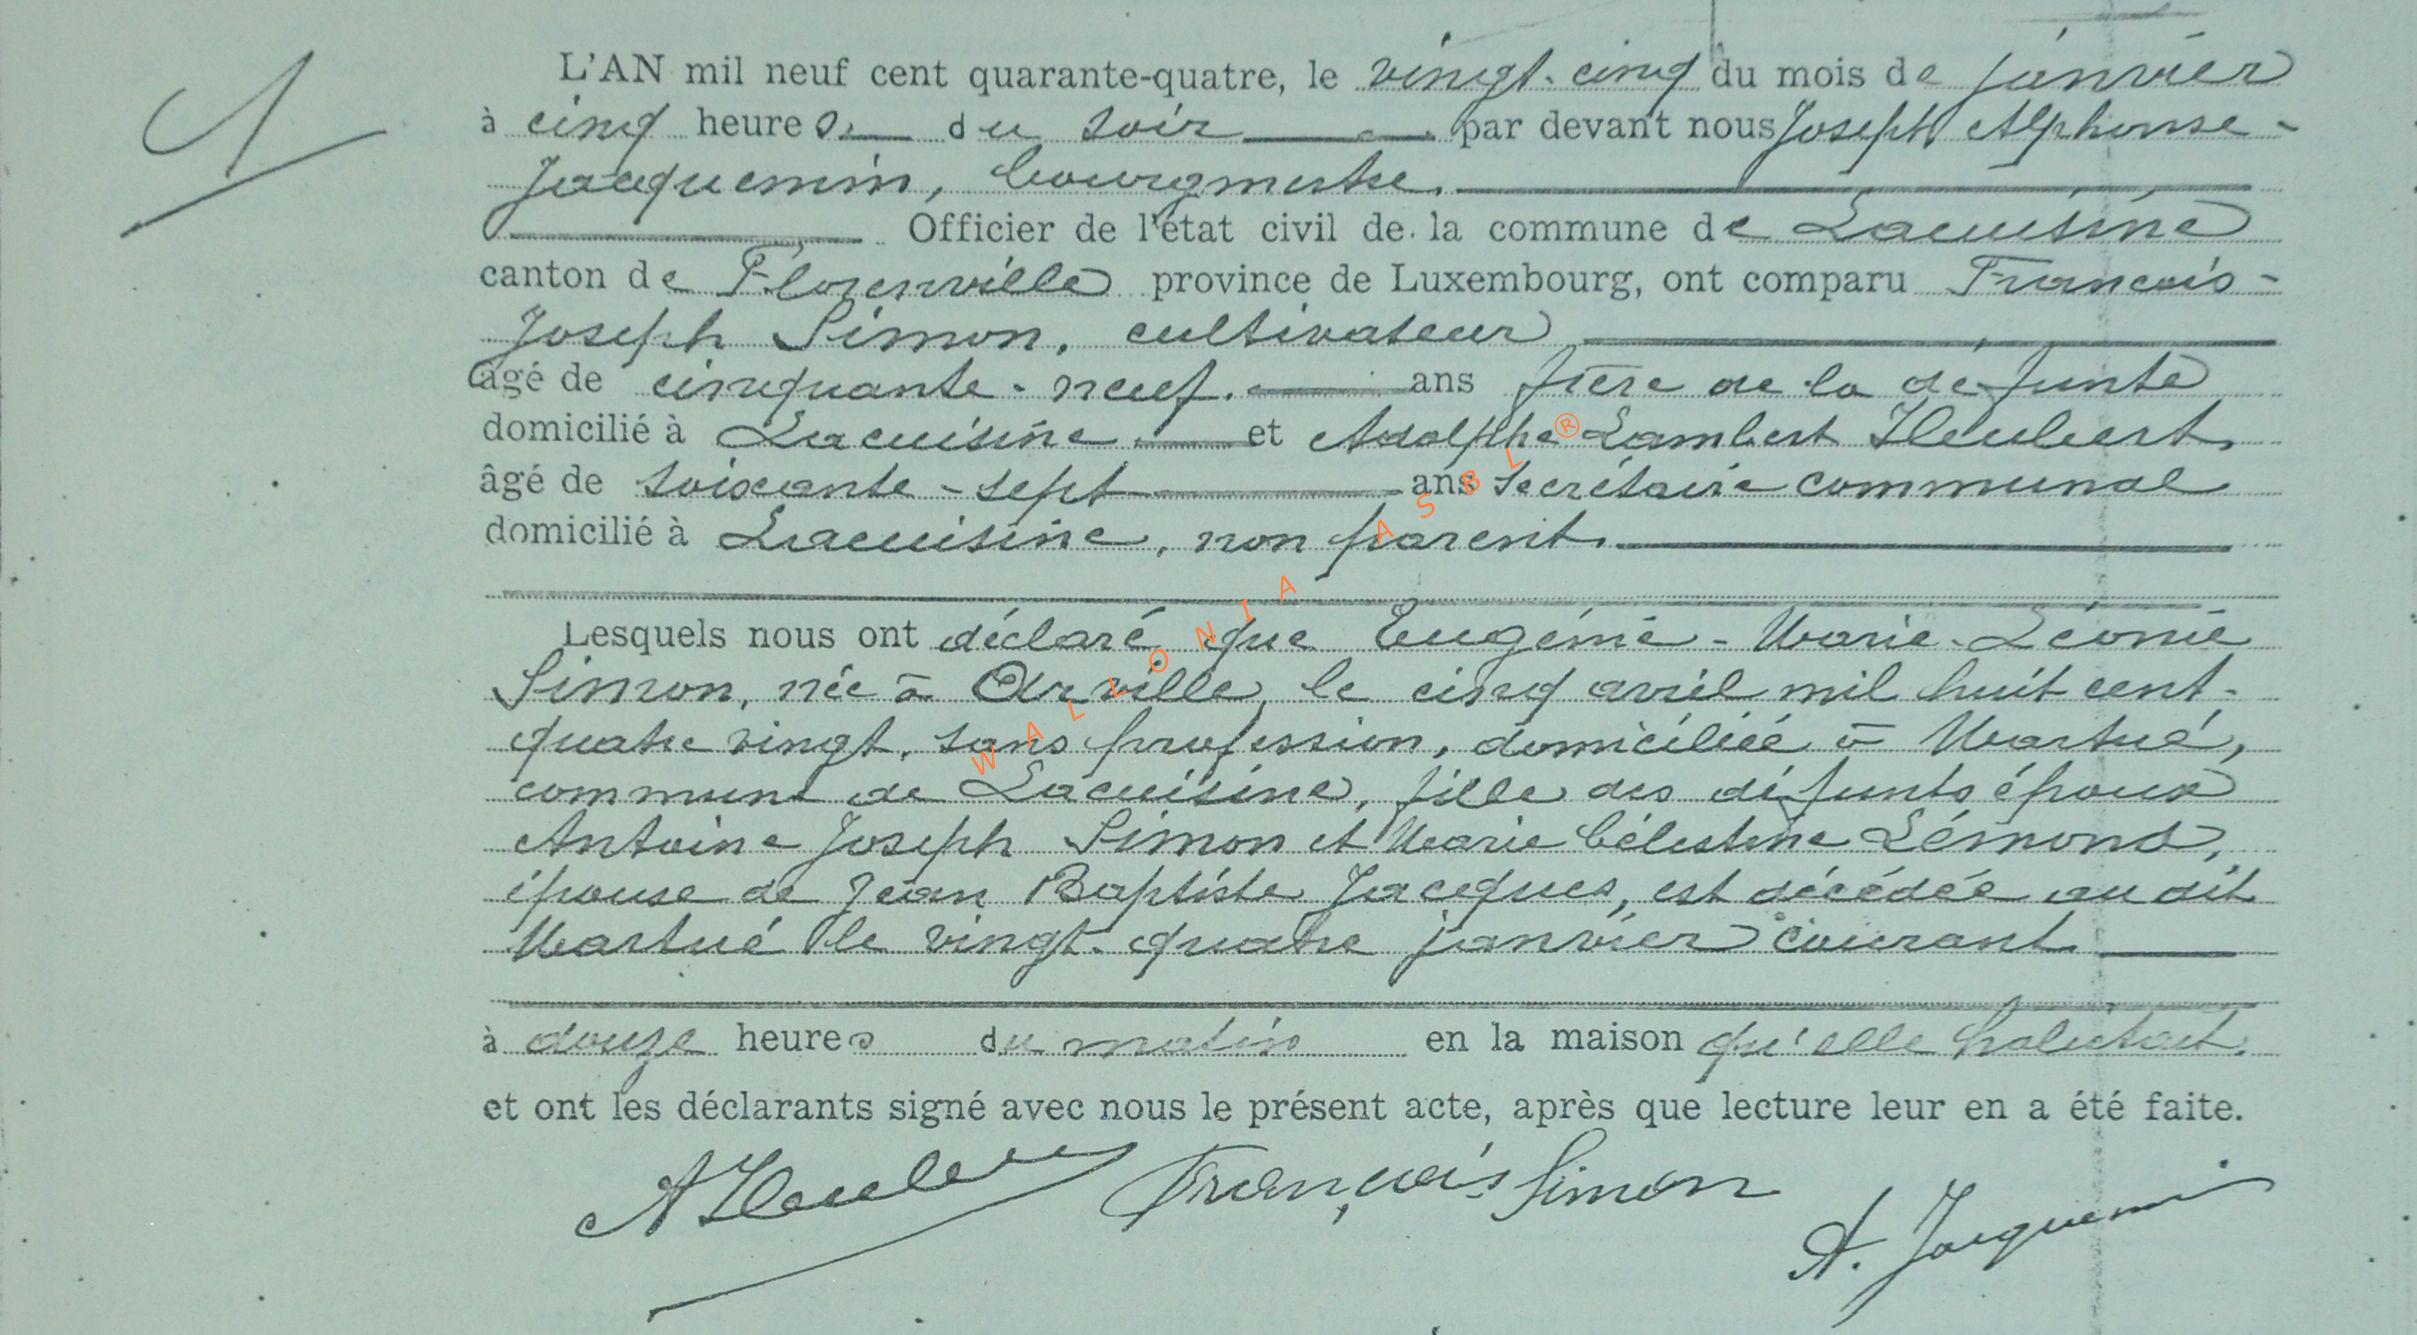 1
L'AN mil neuf cent quarante-quatre, le vingt-cinq du mois de janvier
à cinq heures du soir par devant nous Joseph Alphonse
Jacquemin, bourgmestre.
Officier de l'état civil de la commune de Lacuisine
canton de Florenville province de Luxembourg, ont comparu François-
Joseph Simon, cultivateur
âgé de cinquante-neuf ans frère de la défunte
domicilié à Lacuisine et Adolphe Lambert Heubert,
âgé de soixante-sept ans secrétaire communal
domicilié à Lacuisine, non parent.
Lesquels nous ont déclaré que Eugénie-Marie-Léonie
Simon, née à Orville, le cinq avril mil huit cent-
quatre vingt, sans profession, domiciliée à Martué,
commune de Lacuisine, fille des défunts époux
Antoine Joseph Simon et Marie Célestine Lémond,
épouse de Jean Baptiste Jacques, est décédée au dit
Martué le vingt-quatre janvier courant
à douze heures du matin en la maison qu'elle habitait.
et ont les déclarants signé avec nous le présent acte, après que lecture leur en a été faite.
François Simon
A. Jacquemin
WALLONIA ASBL ®